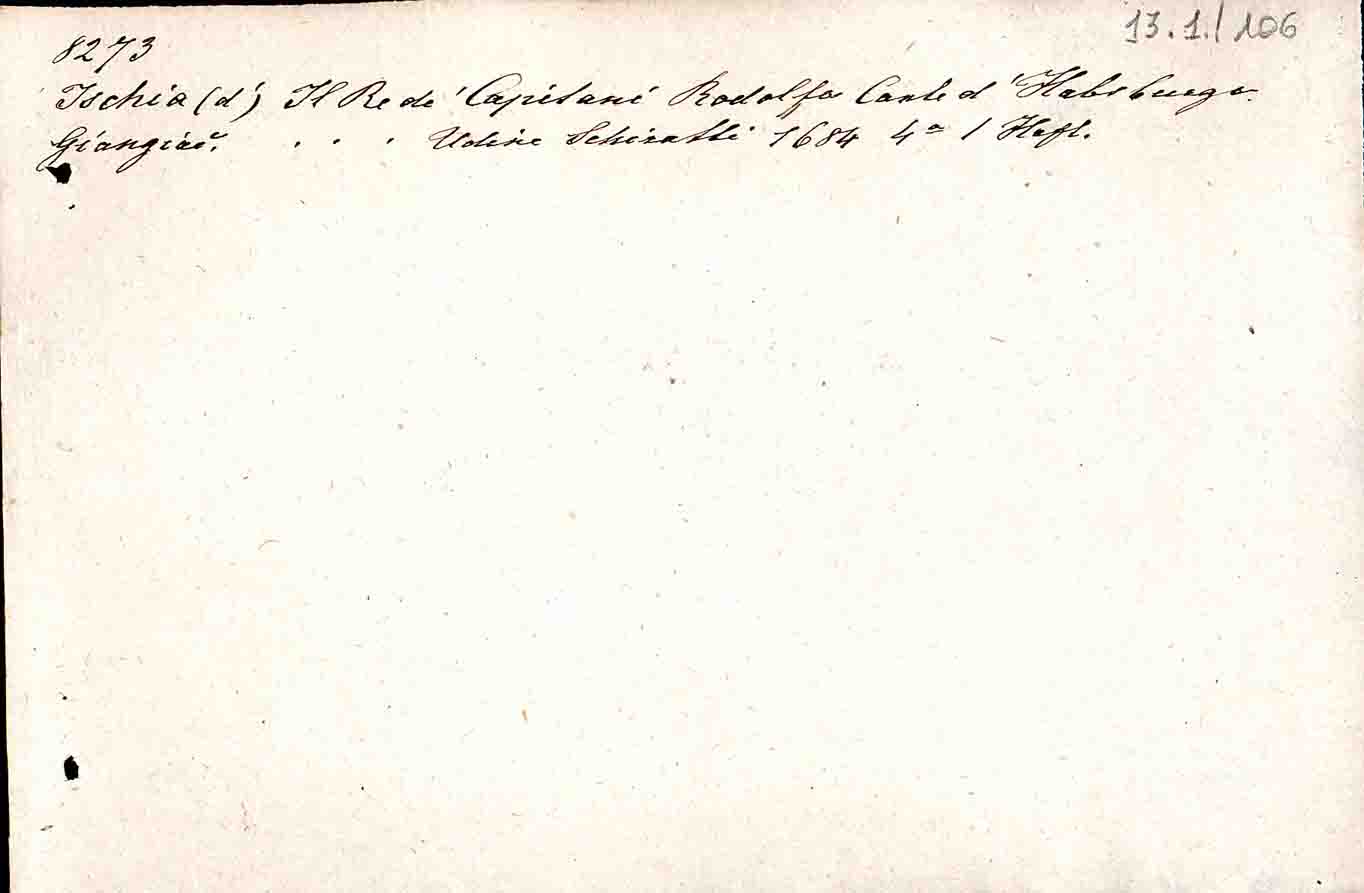 13.1./106
8273
Ischia (d') Il Re de' Capitani Rodolfo Conte d'Habsburgo.
. . . Udine Schiratti 1684 4º 1 Heft.